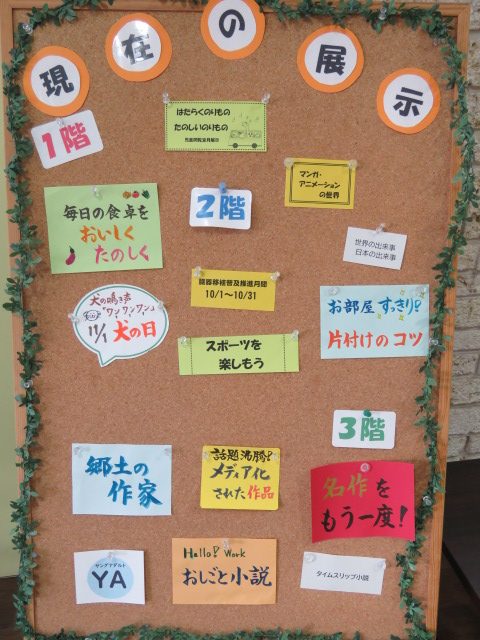 現在の展示
1階
はたらくのりもの
たのしいのりもの
毎日の食卓を
おいしく
たのしく
2階
マンガ・
アニメーション
の世界
世界の出来事
日本の出来事
臓器移植普及推進月間
10/1～10/31
犬の鳴き声
「ワンワンワン」
11/1 犬の日
お部屋すっきり!
片付けのコツ
スポーツを
楽しもう
3階
郷土の
作家
話題沸騰!
メディア化
された作品
名作を
もう一度!
ヤングアダルト
YA
Hello! Work
おしごと小説
タイムスリップ小説